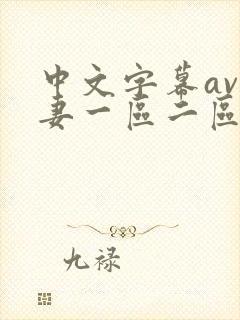 中文字幕av
妻一區二區
九禄